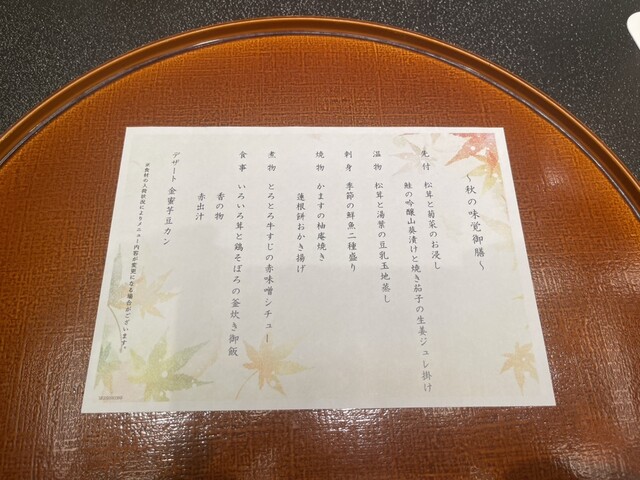 ～秋の味覚御膳～
先付 松茸と菊菜のお浸し
鮭の吟醸山葵漬けと焼き茄子の生姜ジュレ掛け
温物 松茸と湯葉の豆乳玉地蒸し
刺身 季節の鮮魚二種盛り
焼物 かますの柚庵焼き
蓮根餅おかき揚げ
煮物 とろとろ牛すじの赤味噌シチュー
食事 いろいろ茸と鶏そぼろの釜炊き御飯
香の物
赤出汁
デザート 金蜜芋豆カン
※食材の入荷状況によりメニュー内容が変更になる場合がございます。